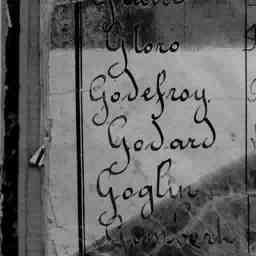 Gloro
Godefroy.
Godard
Goglin